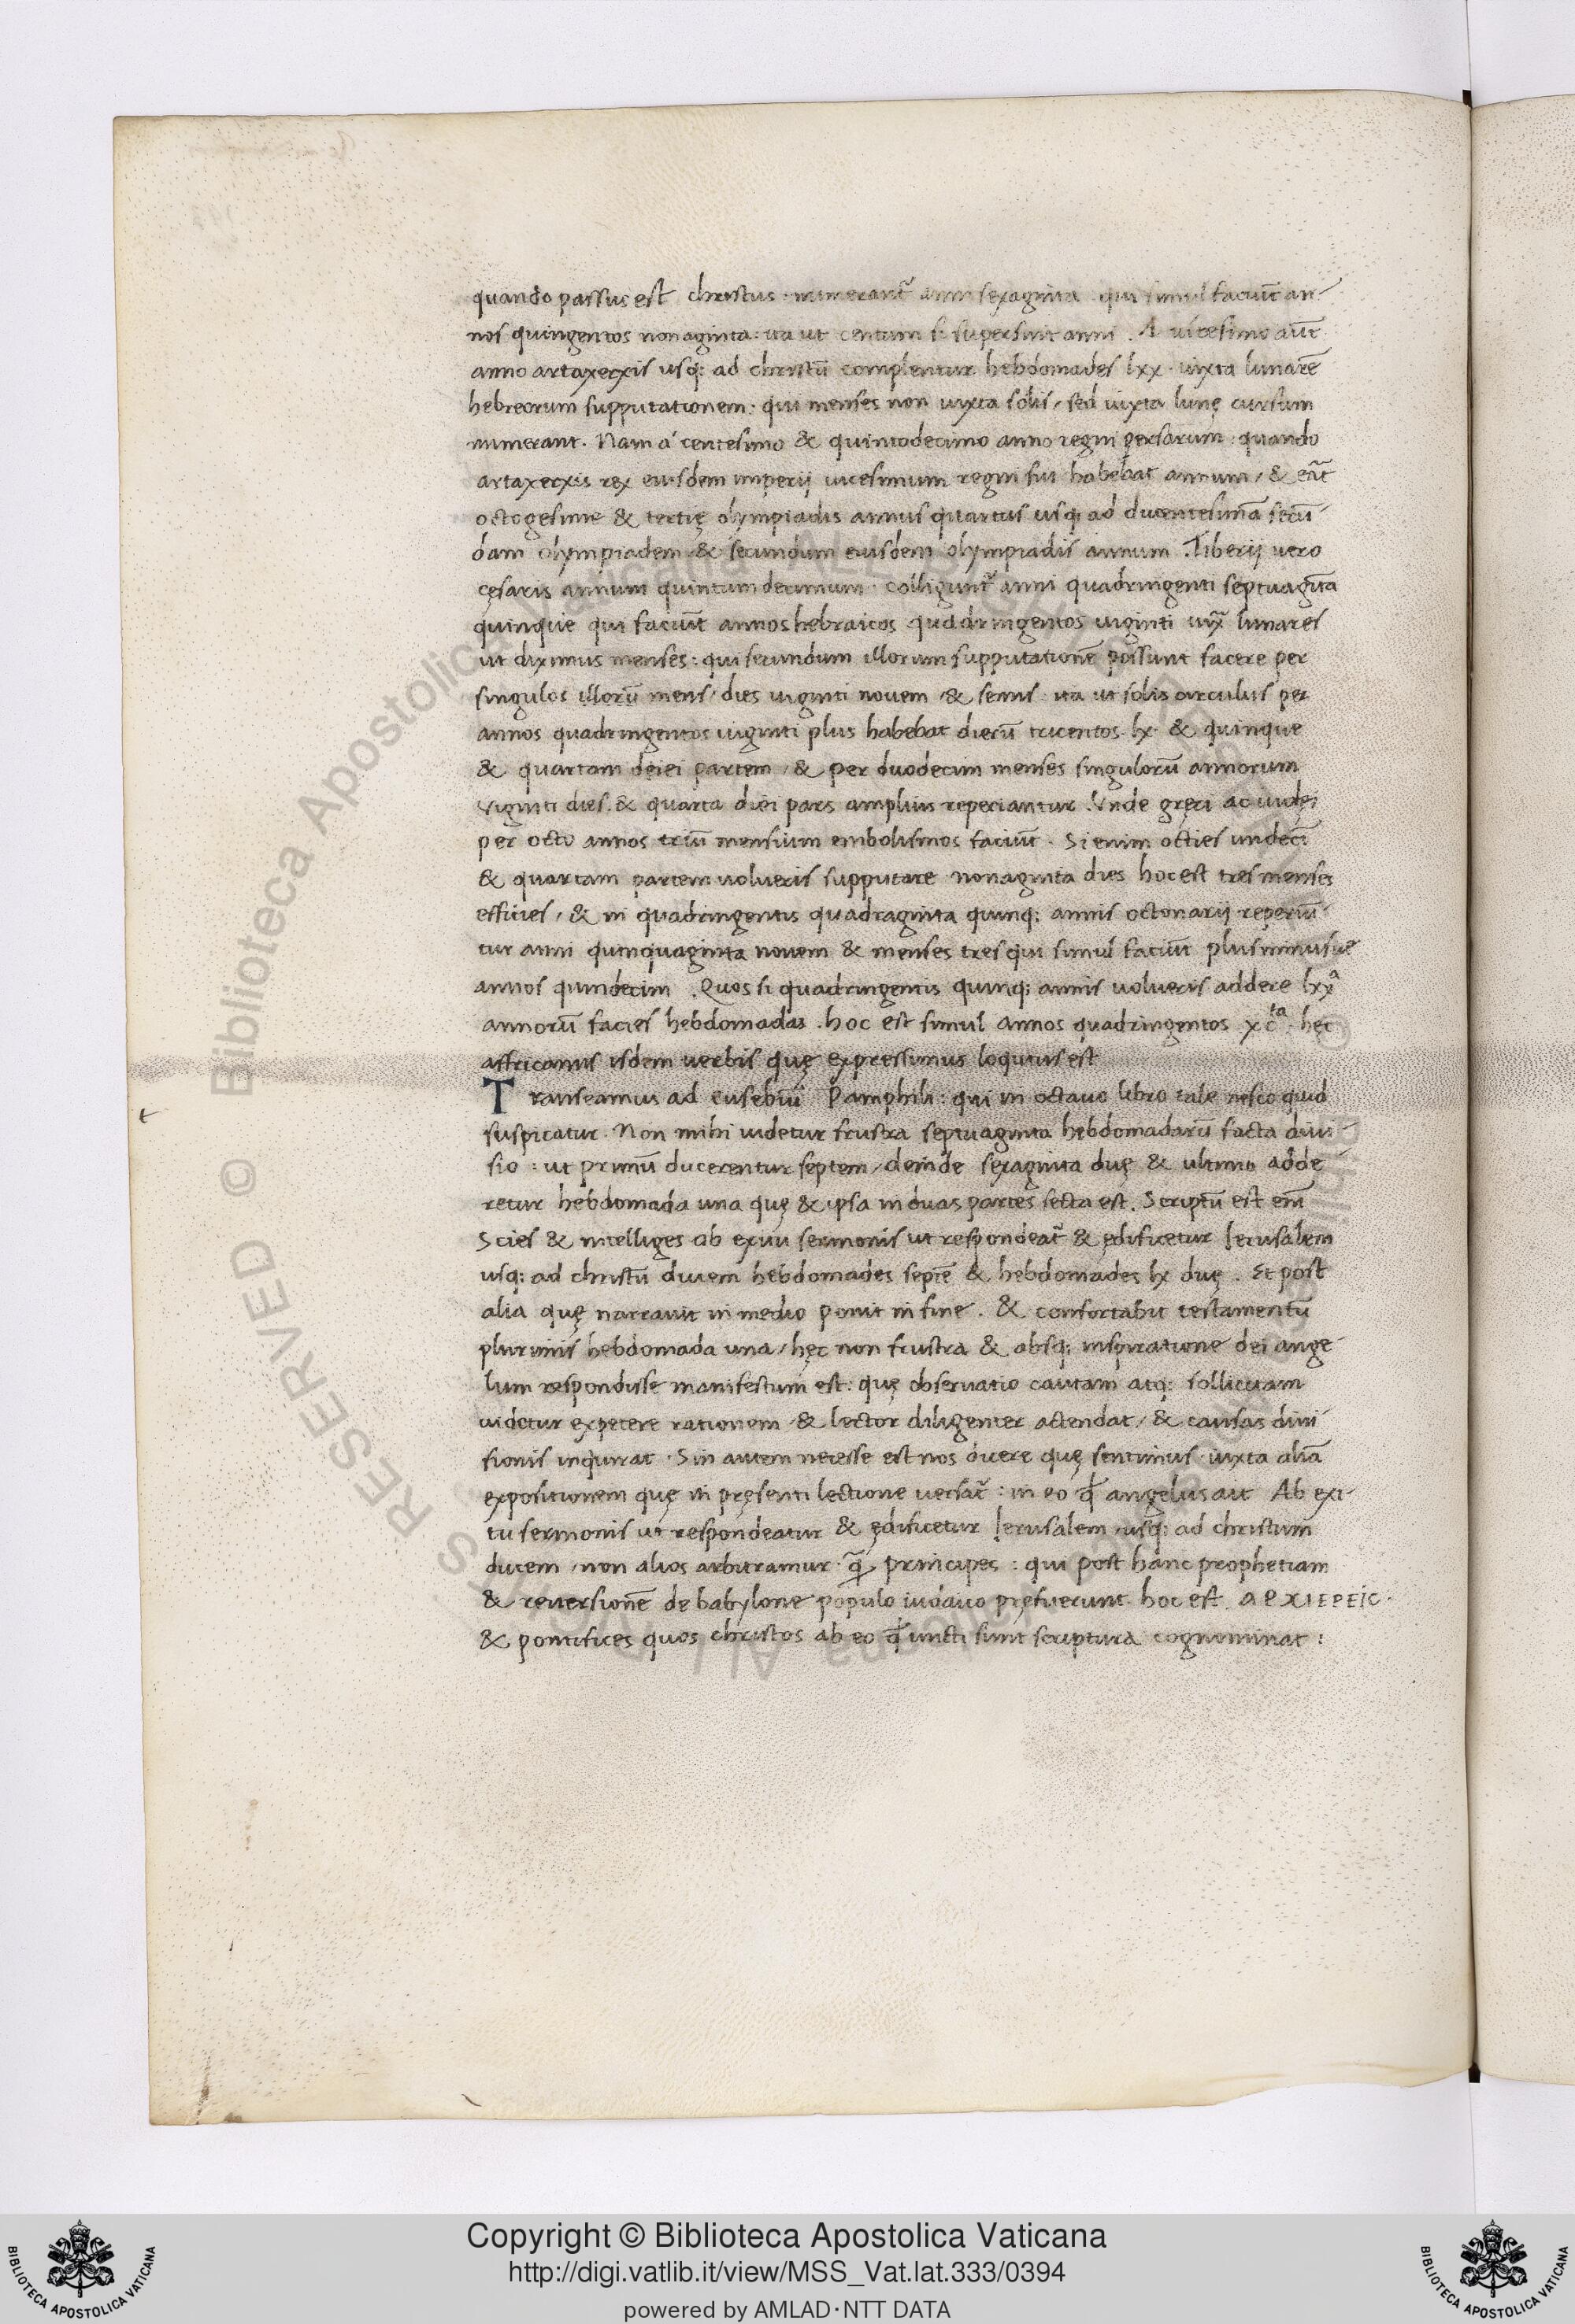 quando passus est christus · numerant᷑ anni sexaginta qui simul faciūt an-
nos quingentos nonaginta : ita ut centum si supersint anni . A uicesimo aūt
anno artaxerxis usq; ad christū complentur hebdomades lxx · iuxta lunarē
hebreorum supputationem : qui menses non iuxta solis / sed iuxta lunę cursum
numerant . Nam a centesimo & quintodecimo anno regni persarum : quando
artaxerxis rex eiusdem imperij uicesimum regni sui habebat annum / & erāt
octogesime & tertię olympiadis annus quartus usq; ad ducentesimā secū-
dam olympiadem & secundum eiusdem olympiadis annum . Tiberij uero
cęsaris annum quintumdecimum · colligunt᷑ anni quadringenti septuagīta
quinque qui faciūt annos hebraicos quadringentos uiginti iuxᵃ lunares
ut diximus menses : qui secundum illorum supputationē possunt facere per
singulos illorū mens / dies uiginti nouem & semis · ita ut solis circulus per
annos quadringentos uiginti plus habebat dierū trecentos lx · & quinque
& quartam deiei partem / & per duodecim menses singulorū annorum
Viginti dies & quarta diei pars amplius reperiantur . Vnde gręci ac iudęi
per octo annos triū mensium embolismos faciūt . Si enim octies undeci
& quartam partem uolueris supputare nonaginta dies hoc est tres menses
efficies / & in quadringentis quadraginta quinq; annis octonarij reperiū-
tur anni quinquaginta nouem & menses tres qui simul faciūt plus minusue
annos quindecim . Quos si quadringentis quinq; annis uolueris addere lxxᵃ
annorū facies hebdomadas . hoc est simul annos quadringentos xcᵗᵃ . hęc
affricanus isdem uerbis quę expressimus loqutus est
Transeamus ad eusebiū Pamphili : qui in octauo libro tale nescio quid
suspicatur . Non mihi uidetur frustra septuaginta hebdomadarū facta diui-
sio : ut primū ducerentur septem / deinde sexaginta duę & ultimo adde
retur hebdomada una quę & ipsa in duas partes secta est . Scriptū est enī
Scies & intelliges ab exitu sermonis ut respondeat᷑ & ędificetur Ierusalem
usq; ad christū ducem hebdomades septē & hebdomades lx duę . Et post
alia quę narrauit in medio ponit in fine . & confortabit testamentū
plurimis hebdomada una / hęc non frustra & absq; inspiratione dei ange-
lum respondisse manifestum est : quę obseruatio cautam atq; sollicitam
uidetur expetere rationem & lector diligenter actendat / & causas diui
sionis inquirat · Sin autem necesse est nos dicere quę sentimus · iuxta aliā
expositionem quę in pręsenti lectione uersat᷑ : in eo qđ angelus ait Ab exi-
tu sermonis ut respondeatur & ędificetur Ierusalem usq; ad christum
ducem / non alios arbitramur · ꝗ̄ principes : qui post hanc prophetiam
& reuersionē de babylone populo iudaico pręfuerunt hoc est αρχιερεις ·
& pontifices quos christos ab eo qđ uncti sunt scriptura cognominat :
Copyright © Biblioteca Apostolica Vaticana
http://digi.vatlib.it/view/MSS_Vat.lat.333/0394
powered by AMLAD·NTT DATA
BIBLIOTECA APOSTOLICA VATICANA
BIBLIOTECA APOSTOLICA VATICANA